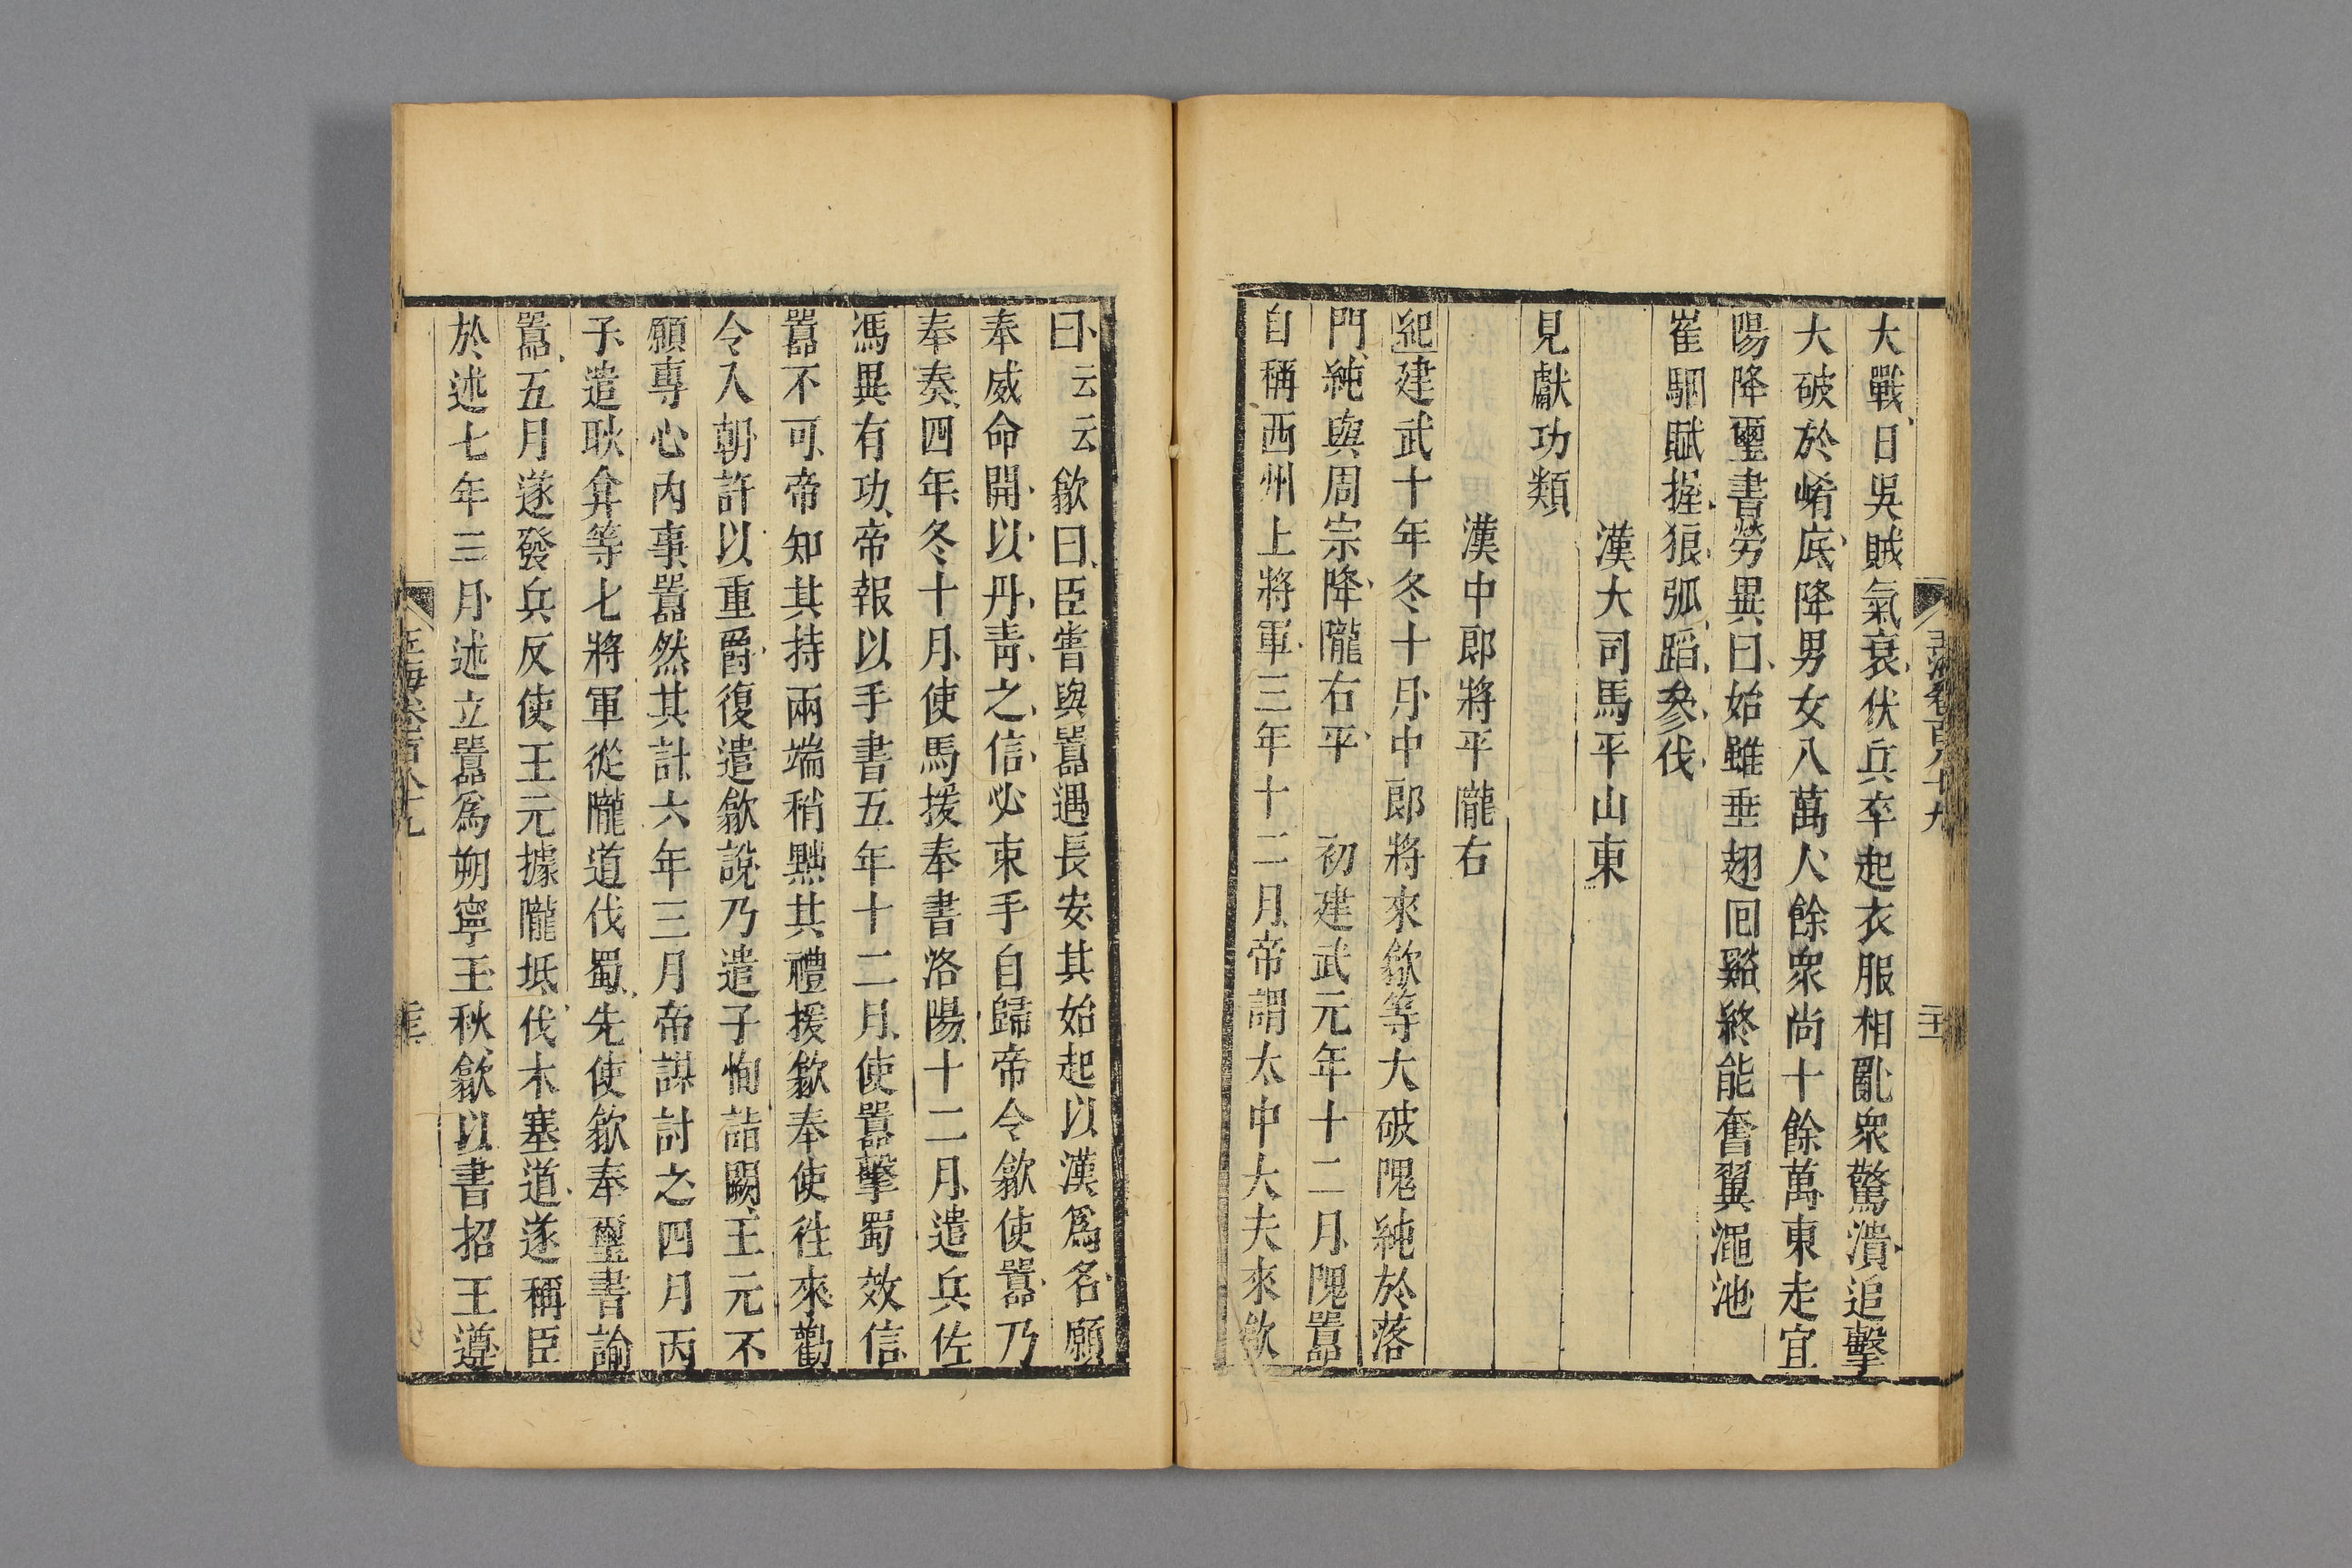 大戰日吳賊氣衰伏兵卒起衣服相亂衆驚潰追擊
大破於崤底降男女八萬人餘衆尚十餘萬東走宜
陽降璽書勞異曰始雖垂翅回谿終能奮翼澠池
崔駰賦握狼弧蹈參伐
漢大司馬平山東
見獻功類
漢中郎將平隴右
紀建武十年冬十月中郎將來歙等大破隗純於落
門純與周宗降隴右平 初建武元年十二月隗囂
自稱西州上將軍三年十二月帝謂太中大夫來歙
曰云云歙曰臣嘗與囂遇長安其始起以漢爲名願
奉威命開以丹青之信必束手自歸帝令歙使囂乃
奉奏四年冬十月使馬援奉書洛陽十二月遣兵佐
馮異有功帝報以手書五年十二月使囂擊蜀效信
囂不可帝知其持兩端稍黜其禮援歙奉使往來勸
令入朝許以重爵復遣歙說乃遣子恂詣闕王元不
願專心內事囂然其計六年三月帝謀討之四月丙
子遣耿弇等七將軍從隴道伐蜀先使歙奉璽書諭
囂五月遂發兵反使王元據隴坻伐木塞道遂稱臣
於述七年三月述立囂爲朔寧王秋歙以書招王遵
玉海卷百八十九